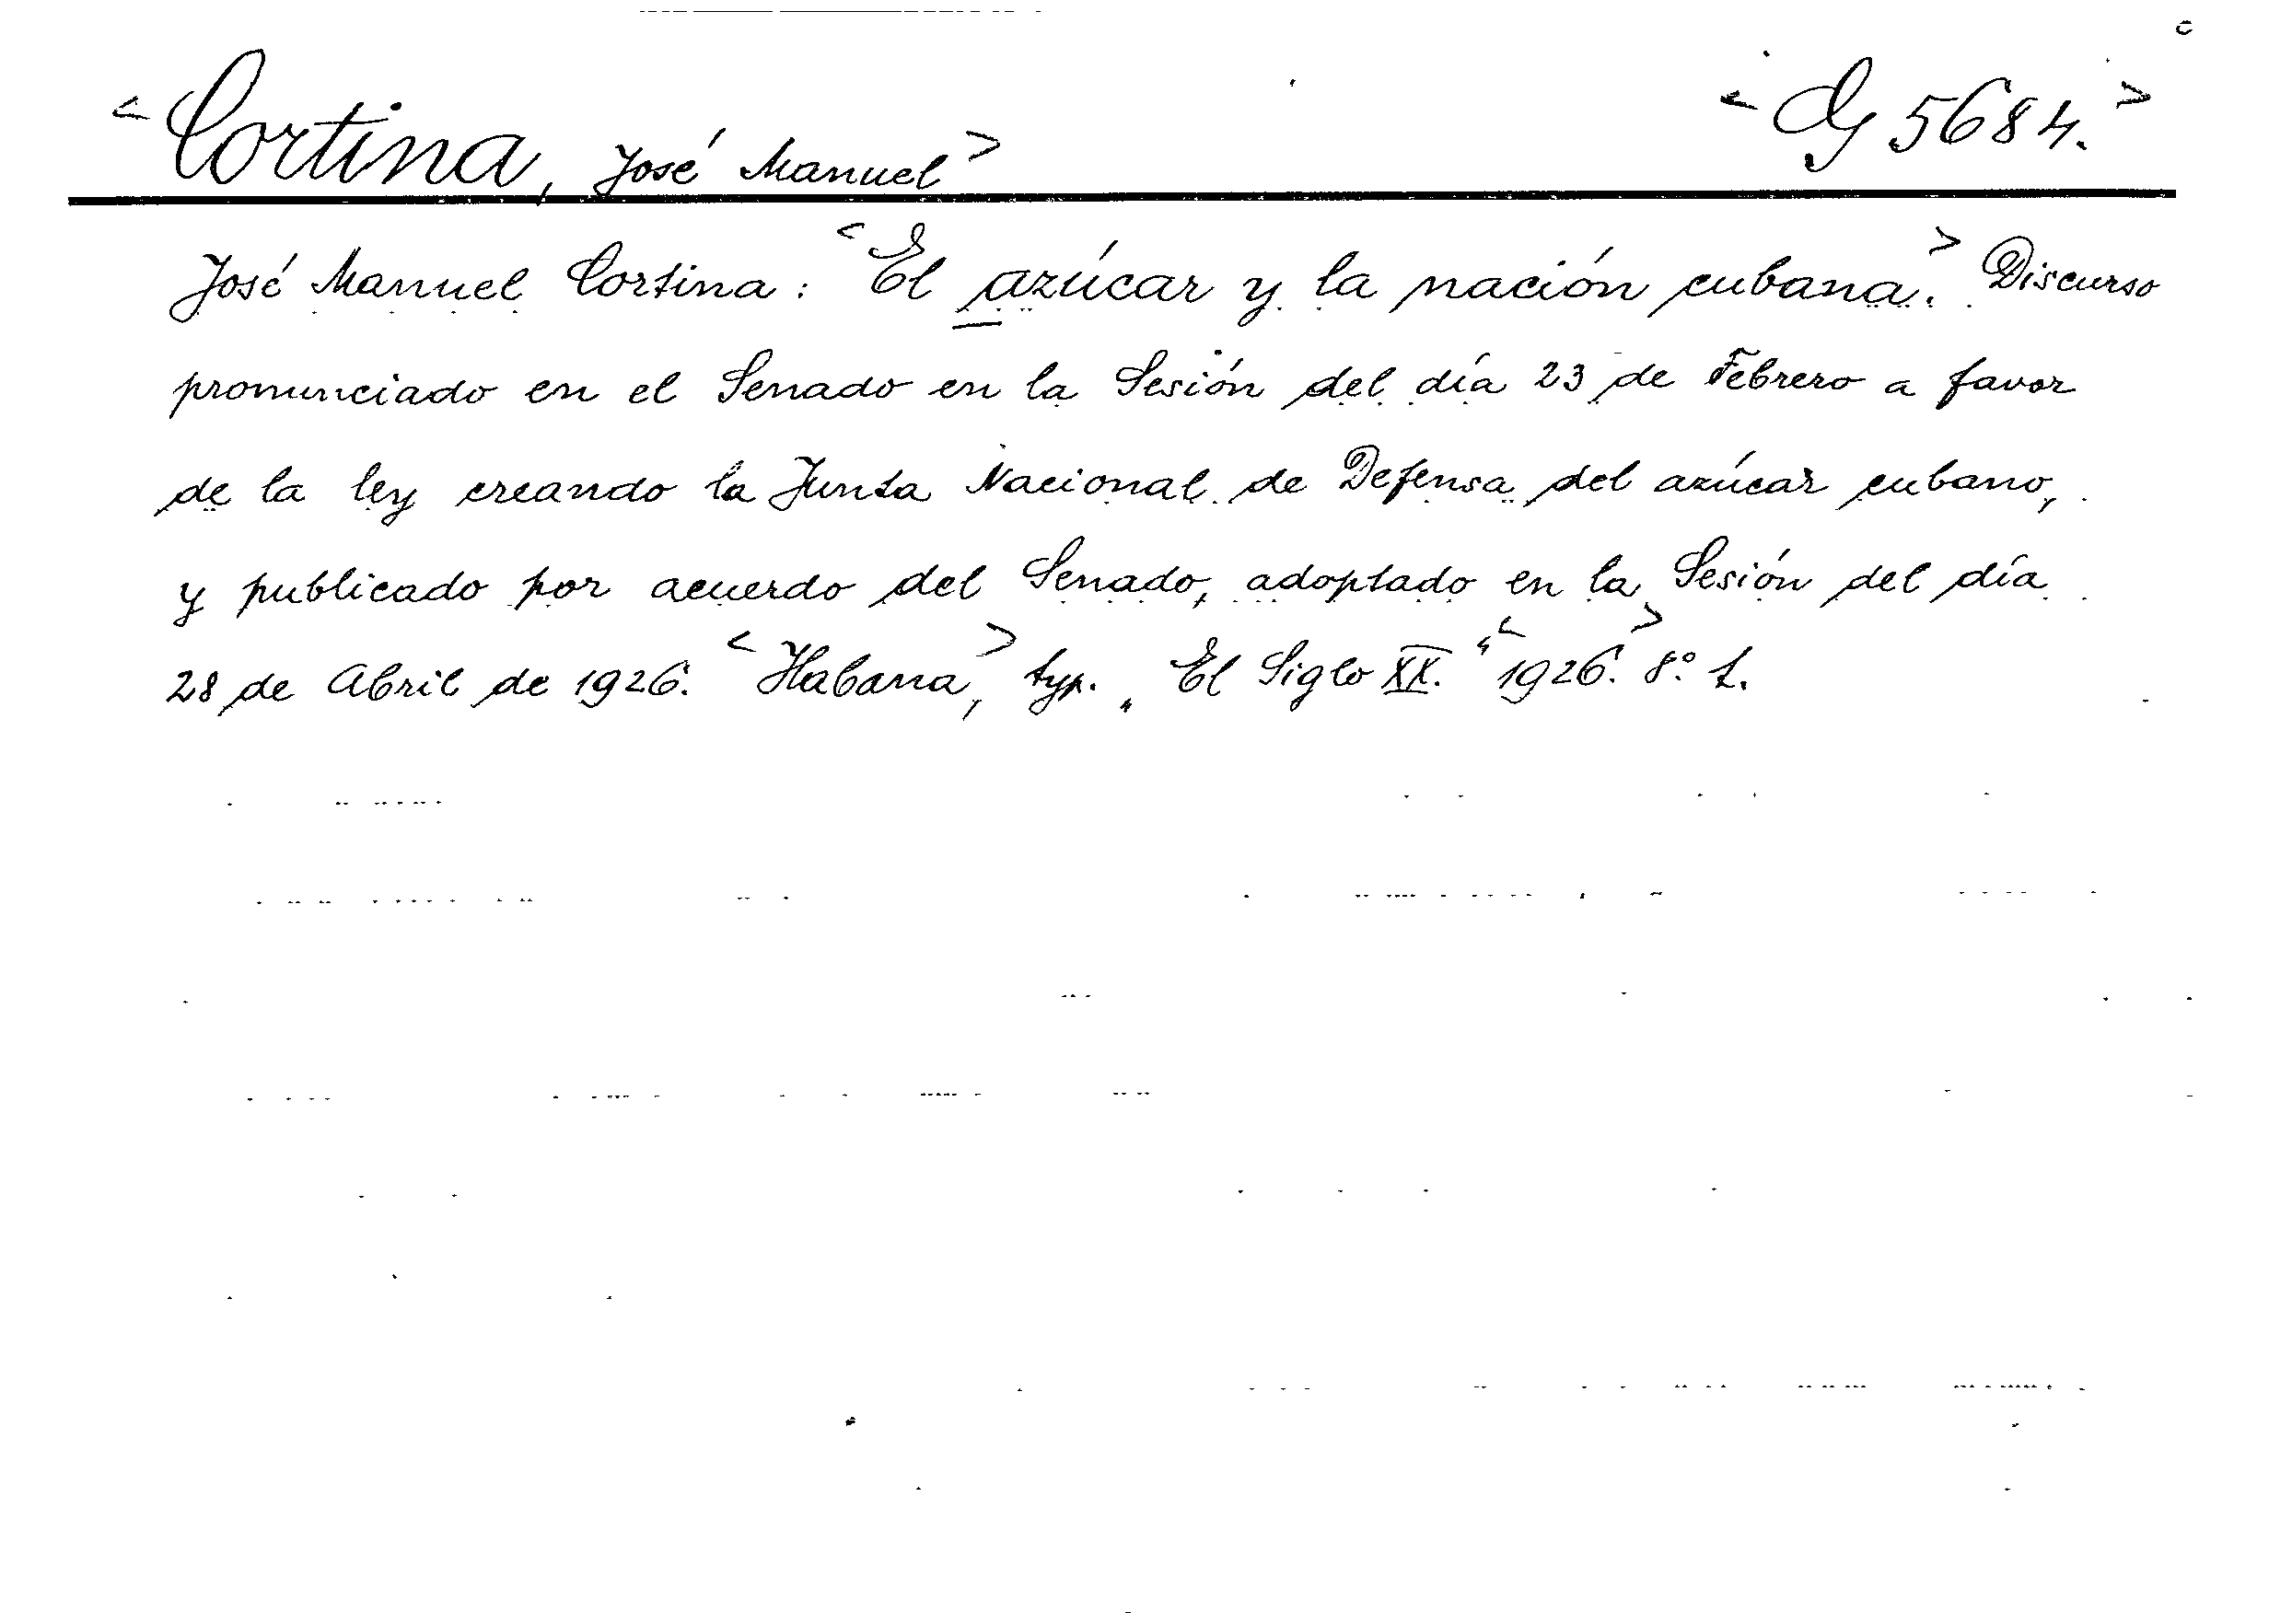 <Cortina, José Manuel> <Og 5684.>
José Manuel Cortina: <El azúcar y la nación cubana.> Discurso
pronunciado en el Senado en la Sesión del día 23 de Febrero a favor
de la ley creando la Junta Nacional de Defensa del azúcar cubano,
y publicado por acuerdo del Senado, adoptado en la Sesión del día
28 de Abril de 1926. <Habana,> typ. „El Siglo XX.“ <1926.> 8º.